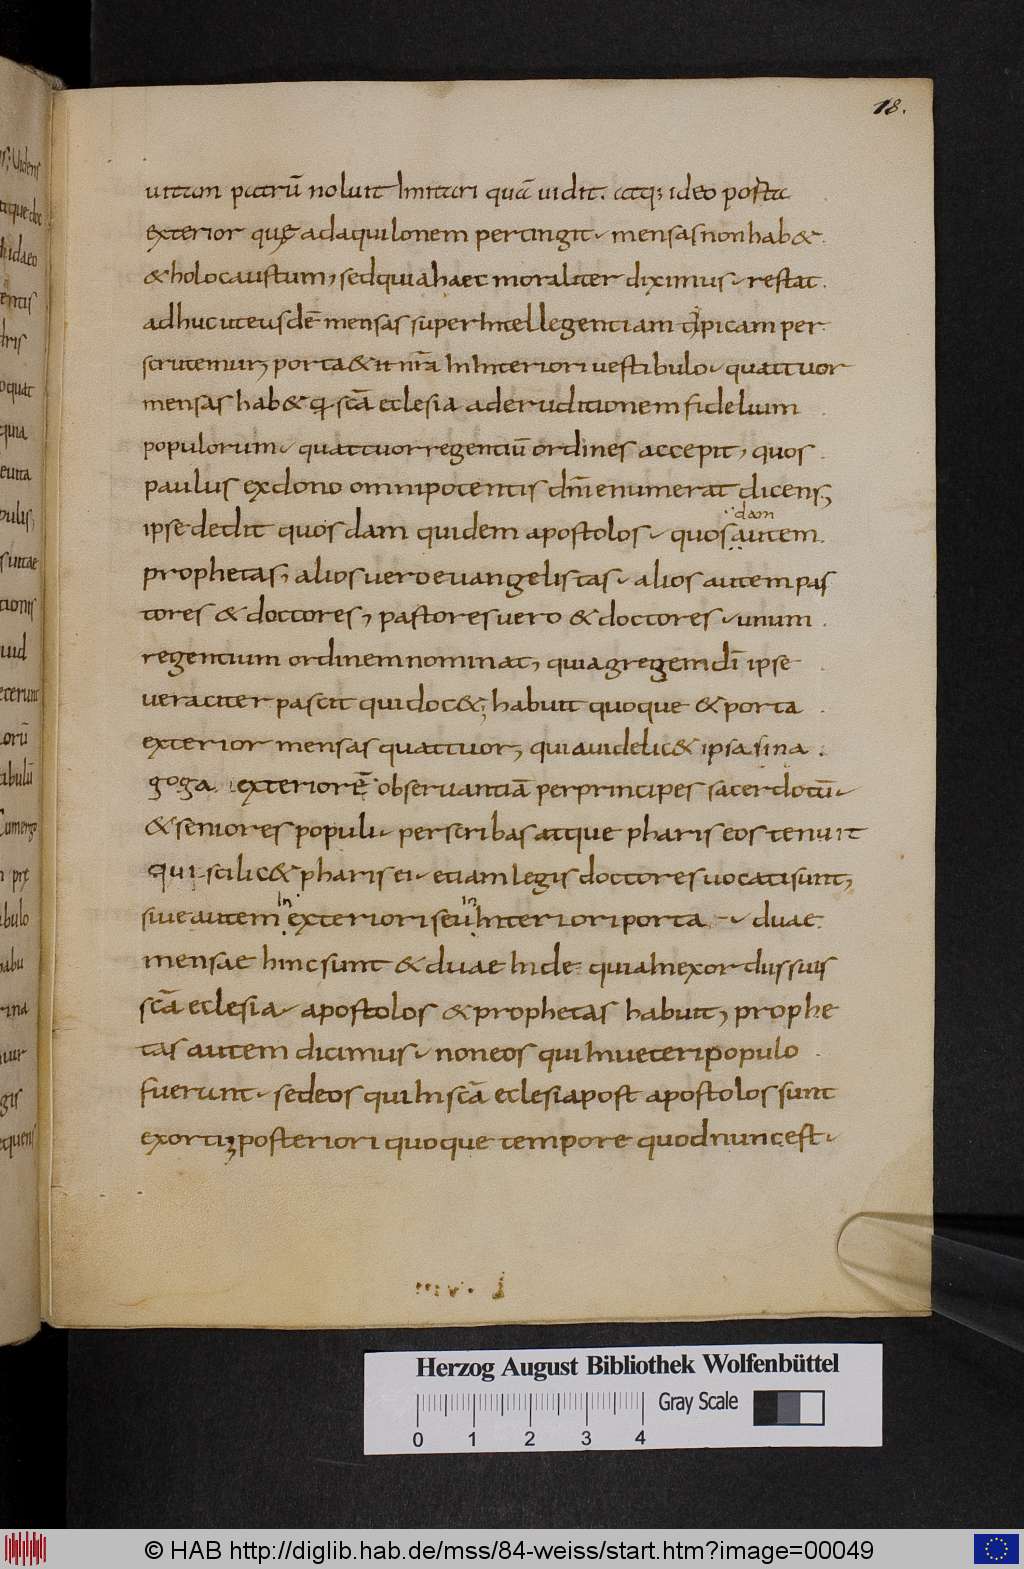 18.
uitam patrū noluit Imitari quā uidit. atq; ideo porta
exterior quę adaquilonem pertingit, mensas non hab&
& holocaustum, sed quia haec moraliter diximus, restat
adhuc ut eusdē mensas super Intellegentiam tẏpicam per
scrutemur; porta & it nr̄a In Interiori uestibulo, quattuor
mensas hab& q; scā eclesia ad eruditionem fidelium
populorum, quattuor regentiū ordines accepit, quos
paulus ex dono omnipotentis dn̄i enumerat dicens;
ipse dedit quosdam quidem apostolos, quos autem
dam
prophetas, alios uero euangelistas, alios autem pas
tores & doctores, pastores uero & doctores, unum
regentium ordinem nominat, quia gregem dī ipse
ueraciter pascit qui doc&; habuit quoque & porta
exterior mensas quattuor; quia uidelic& ipsa sina
goga exteriorē obseruantiā per principes sacerdotū,
& seniores populi, per scribas atque phariseos tenuit
qui scilic& pharisei, etiam legis doctores uocati sunt,
siue autem In exteriori seu in Interiori porta, duae
mensae hinc sunt & duae Inde quia In exordiis suis
scā eclesia, apostolos & prophetas habuit, prophe
tas autem dicimus, non eos qui In ueteri populo
fuerunt, sed eos qui In scā eclesia post apostolos sunt
exorti; posteriori quoque tempore quod nunc est,
Herzog August Bibliothek Wolfenbüttel
Gray Scale
0 1 2 3 4
© HAB http://diglib.hab.de/mss/84-weiss/start.htm?image=00049